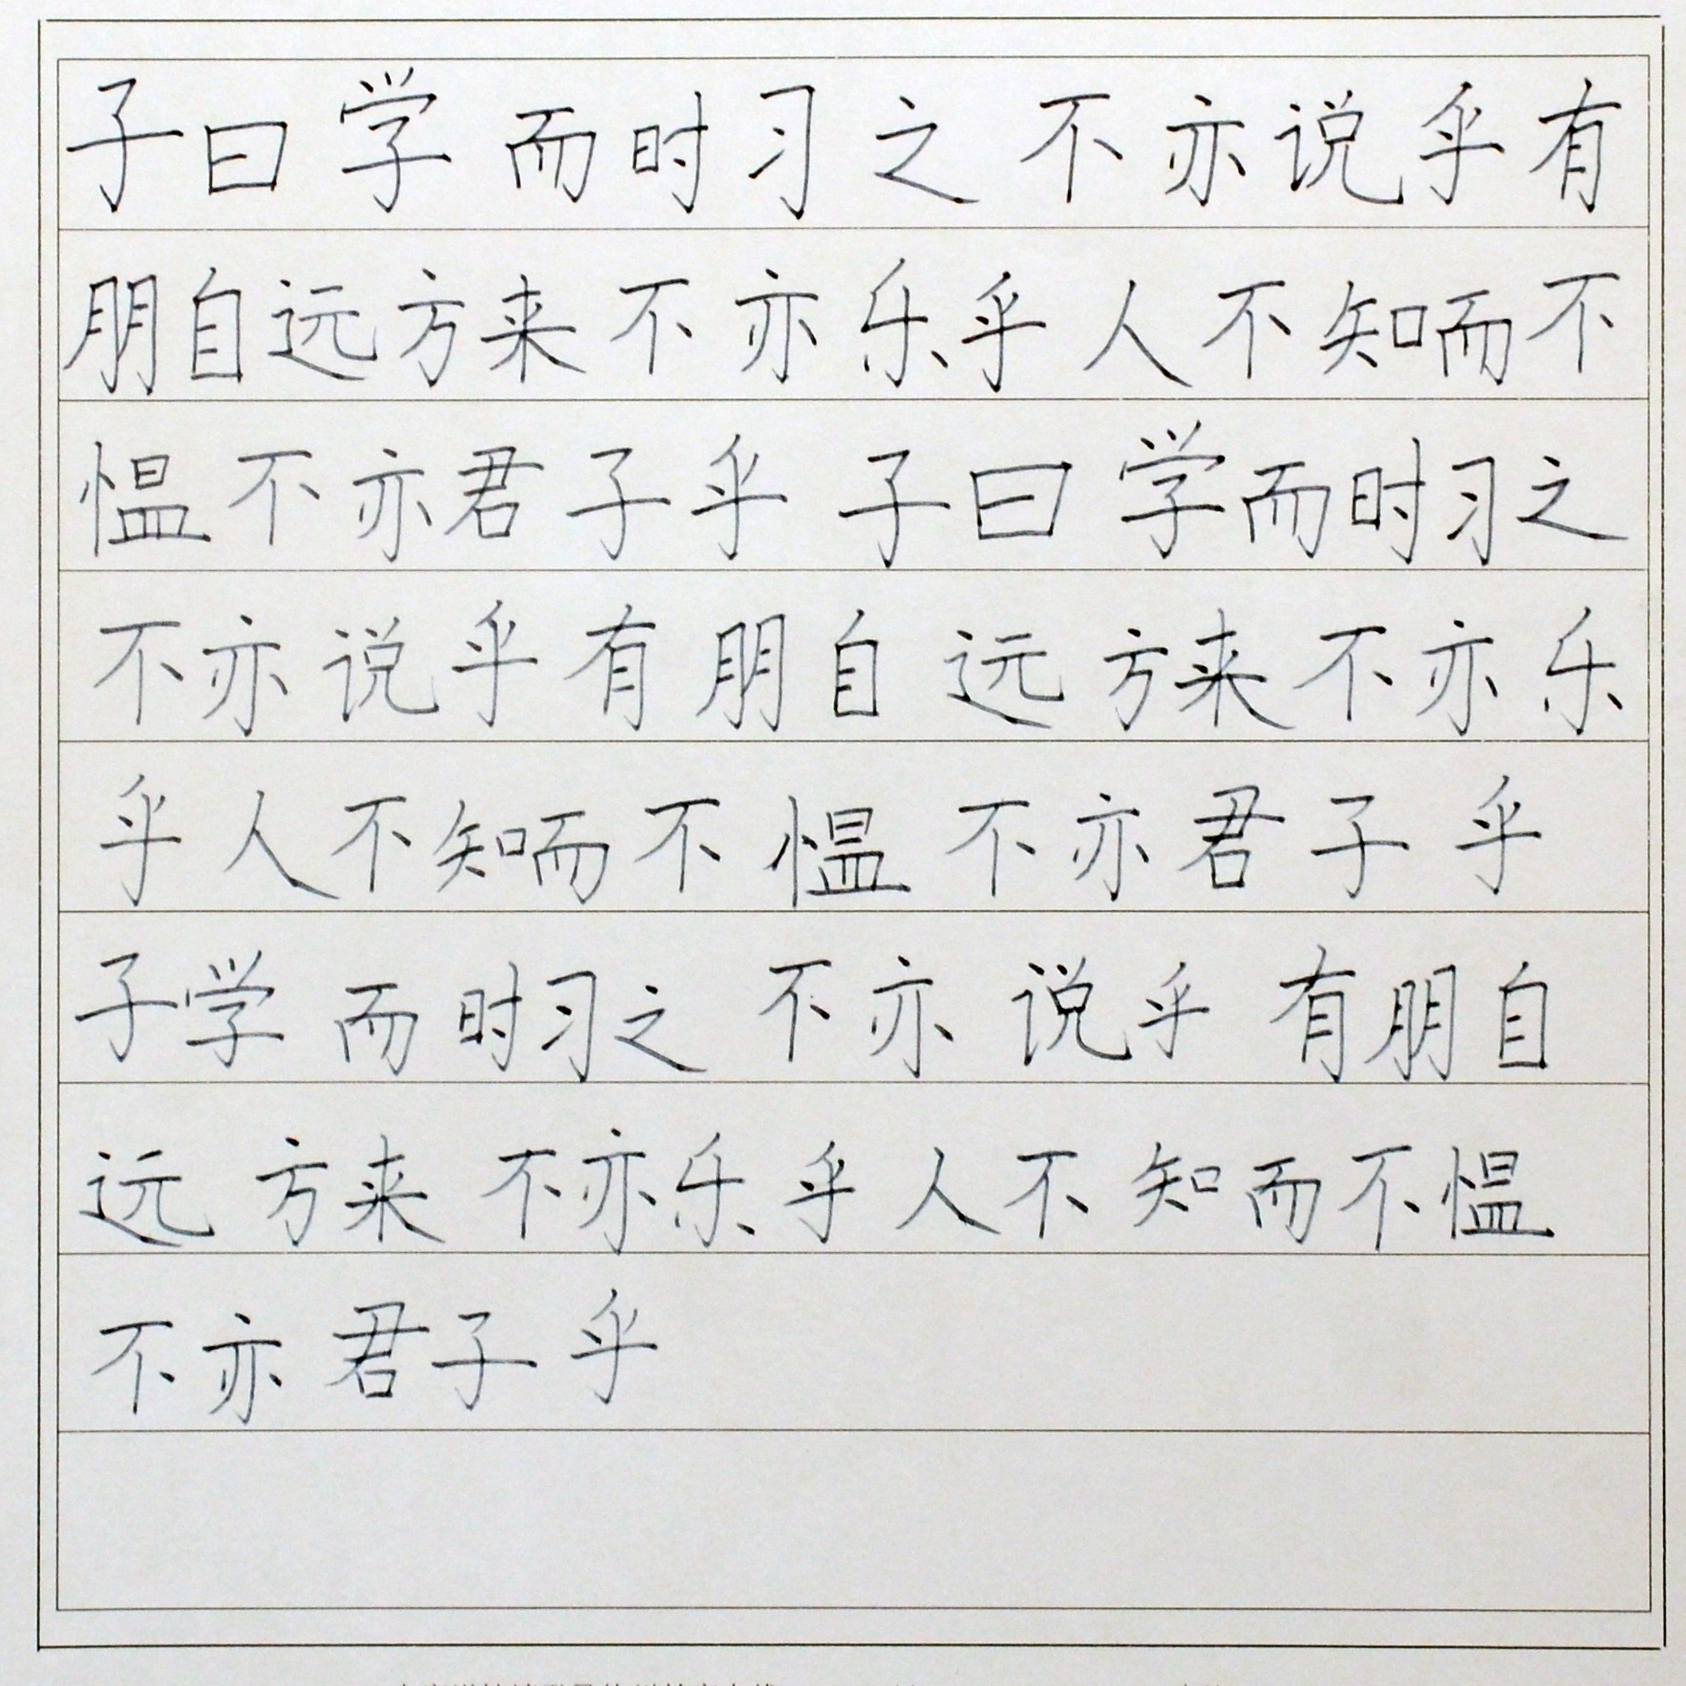 子曰学而时习之不亦说乎有
朋自远方来不亦乐乎人不知而不
愠不亦君子乎子曰学而时习之
不亦说乎有朋自远方来不亦乐
乎人不知而不愠不亦君子乎
子学而时习之不亦说乎有朋自
远方来不亦乐乎人不知而不愠
不亦君子乎